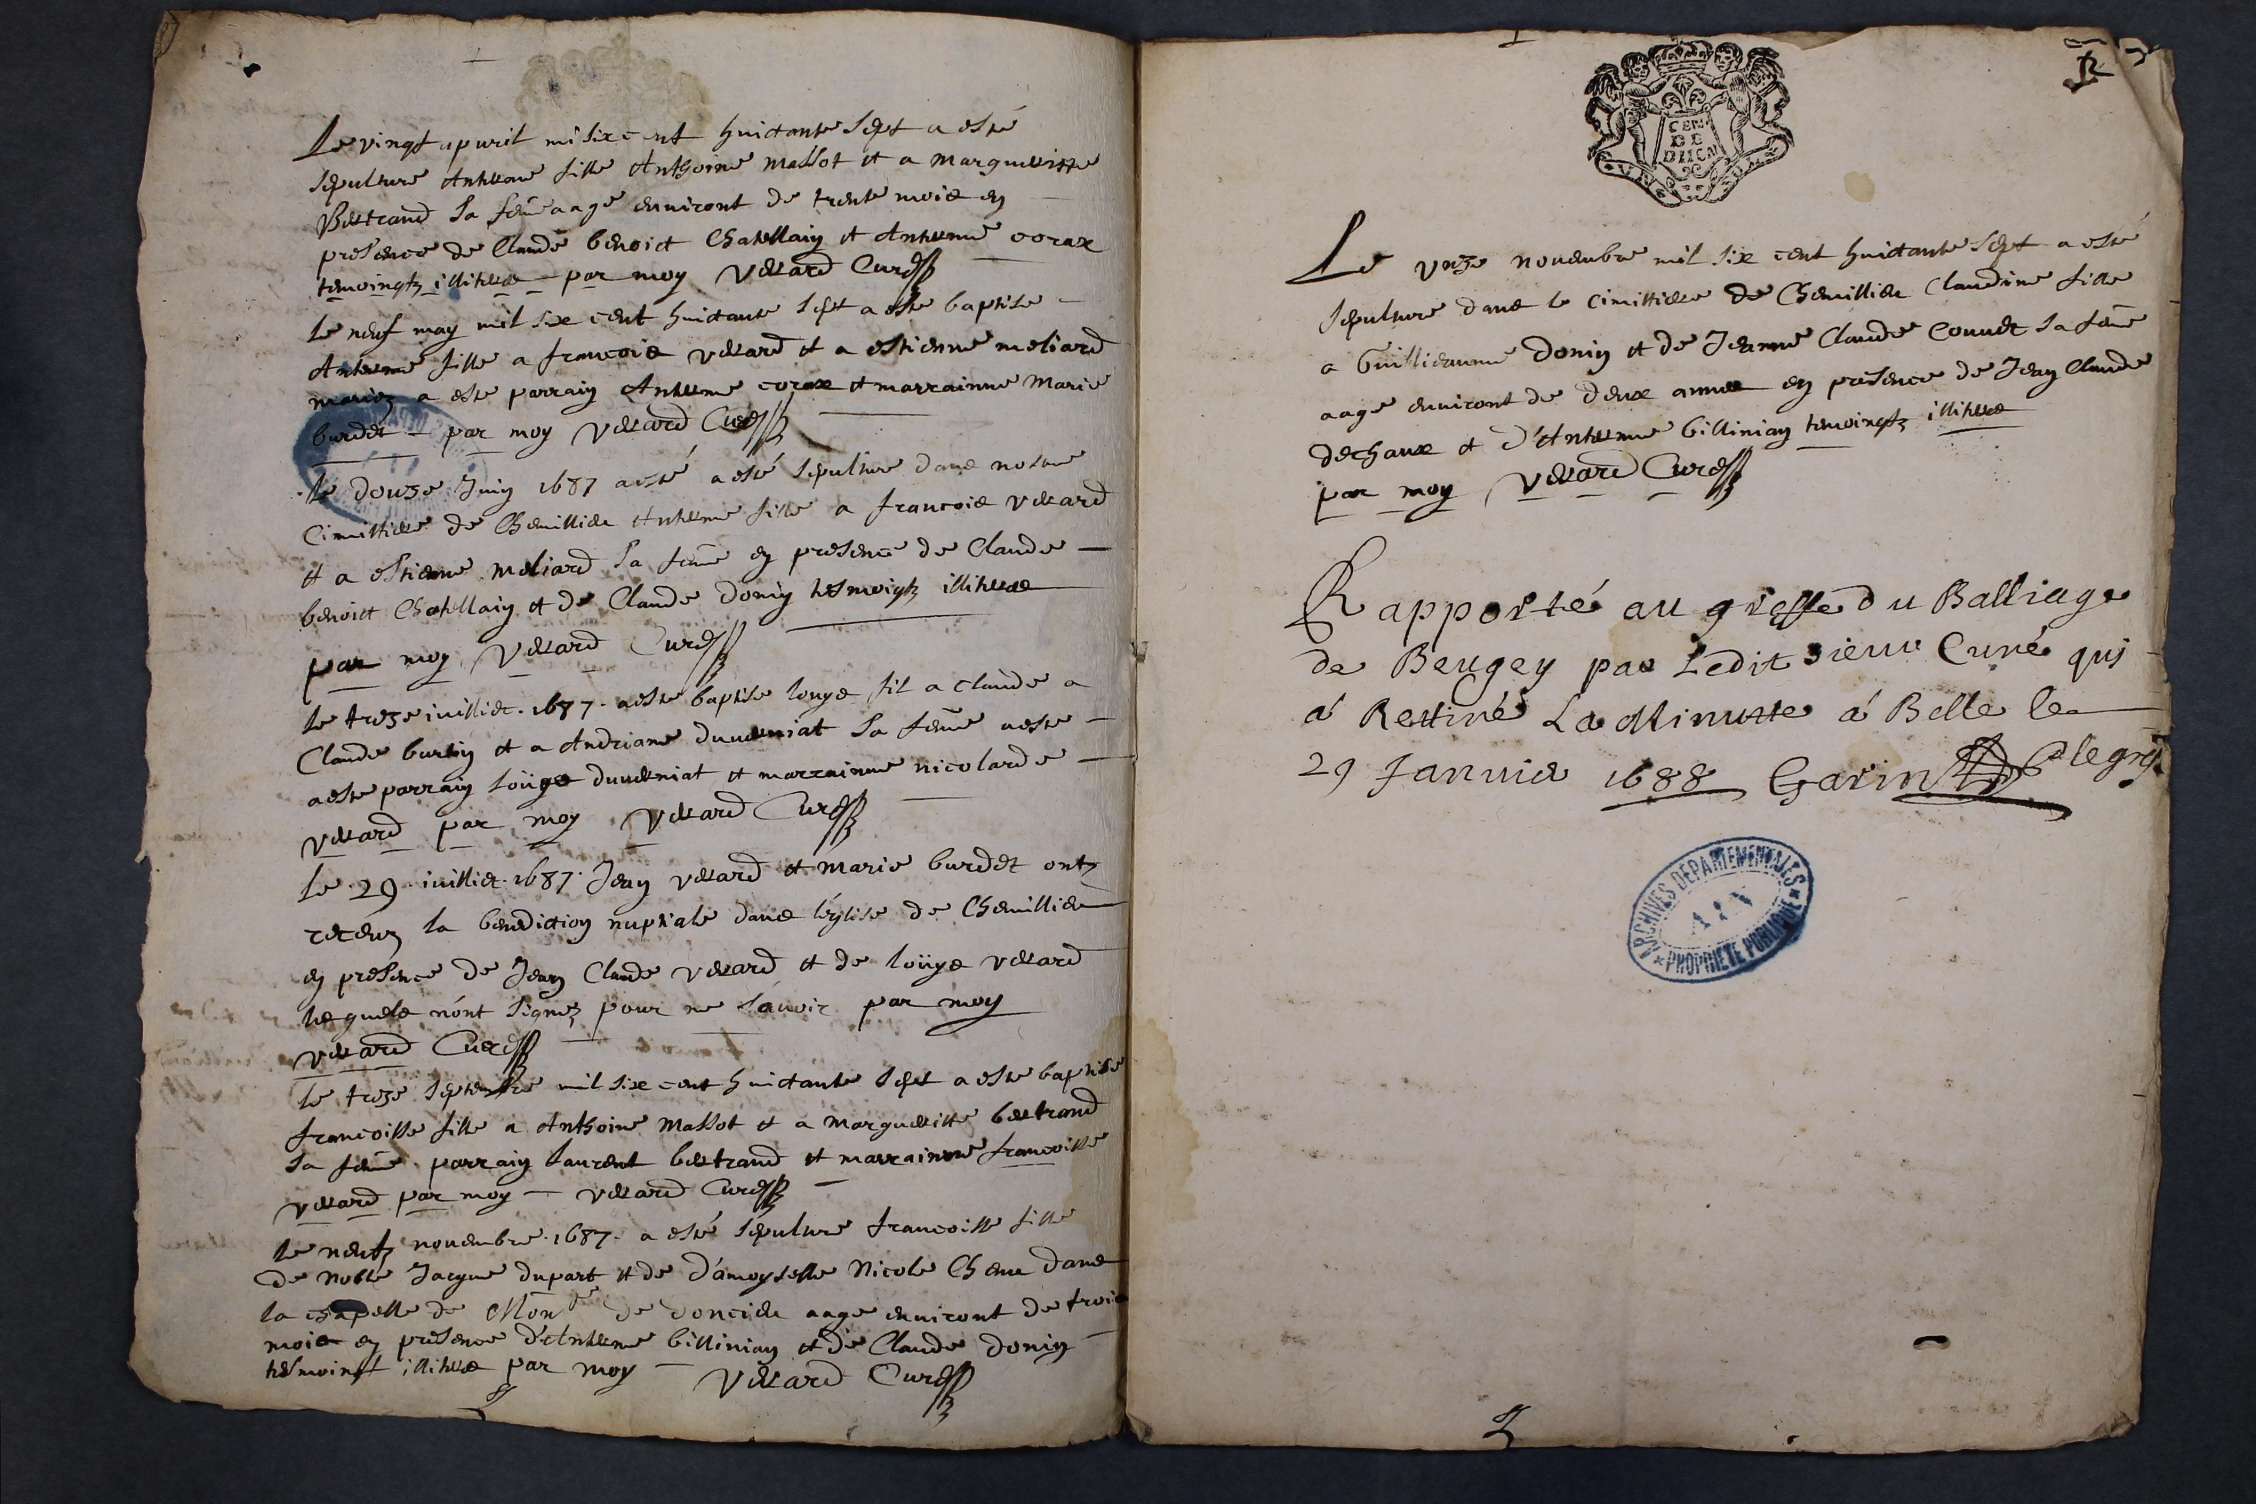 Le vingt apuril mil six cent huictante sept a esté
sepulture Antheme fille Anthoine Massot et a Margueritte
Bertrand sa feme aage environt de trente mois en
presence de Claude benoict Chatellain et Antheme corax
temoingtz illiteres par moy Verard Curé
le neuf may mil six cent huictante sept a este baptise
Antheme fille a francois verard et a estienne meliard
mariez a este parrain Antheme corax et marrainne Marie
burdet par moy Verard Curé
le douze Juin 1687 a esté a esté sepulture dans nostre
Cimittiere de Chemillieu Antheme fille a francois verard
et a estienne meliard sa feme en presence de Claude
benoict Chatellain et de Claude donin tesmoigtz illiteres
par moy Verard Curé
le treze iuillier 1687 a este baptise louys fil a claude a
Claude burtin et a Andriane duverniat sa feme a este
a este parrain loüys duverniat et marrainne nicolarde
verard par moy Verard Curé
le 29 iuillier 1687 Jean verard et Marie burdet ontz
receuz la benediction nuptiale dans léglise de Chemillieu
en presence de Jean Claude verard et de loüys verard
lesquels nónt signez pour ne scavoir par moy
Verard Curé
le treze septembre mil six cent huictante sept a este baptise
francoisse fille a Anthoine Massot et a Margueritte bertrand
sa feme parrain laurent bertrand et marrainne francoisse
verard par moy verard Curé
le neufz novembre 1687 a esté sepulture francoisse fille
de Noble Jacque dupart et de dámoyselle Nicole Chene dans
la chapelle de de doncieu aage environt de trois
mois en presence dAntheme billinian et de Claude donin
tesmoingt illiteres par moy Verard Curé
CEN
DE
DIION
UN SOL
Le vnze novembre mil six cent huictante sept a esté
sepulture dans le cimittiere de Chemillieu Claudine fille
a Guilliaume donin et de Jeanne Claude Couvet sa feme
aage environt de deux annees en presence de Jean Claude
dechaux et d'Antheme billinian temoingtz illiteres
par moy Verard Curé
Rapporté au greffe du Balliage
de Beugey par Ledit sieur Curé qui
a Rettiré La Minutte á Belle le
29 Janvier 1688 Garin
ARCHIVES DEPARTEMENTALES
AIN
PROPRIETE PUBLIQUE